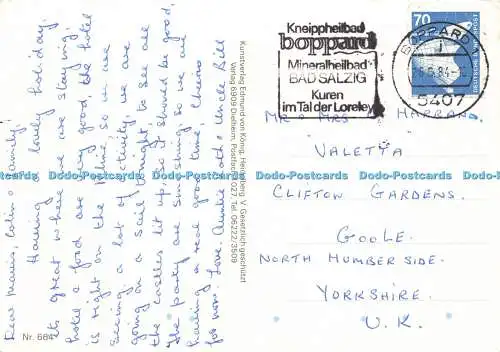 Dear Mavis, Colin & family,
Having a lovely holiday.
its great where we are staying.
hotel & food are very good the hotel
is right on the Rhine, so we are
seeing a lot of activity, we are
going on a sail tonight, to see all
the castles lit up, so it should be good.
The party are smashing, so we are
having a real good time, Cheerio
for now. Love. Auntie Cath & Uncle Bill
Nr. 684
Kunstverlag Edmund von König, Heidelberg V. Gesetzlich geschützt
Verlag 6909 Dielheim, Postfach 1027, Tel. 06222/3509
Kneippheilbad
boppard
Mineralheilbad
BAD SALZIG
Kuren
im Tal der Loreley
BOPPARD 1
5407
70
MR & MRS C HARRAND.
VALETTA
CLIFTON GARDENS.
GOOLE.
NORTH HUMBERSIDE.
YORKSHIRE.
U.K.
Dodo-Postcards Dodo-Postcards Dodo-Postcards Dodo-Postcards Dodo-Postcards